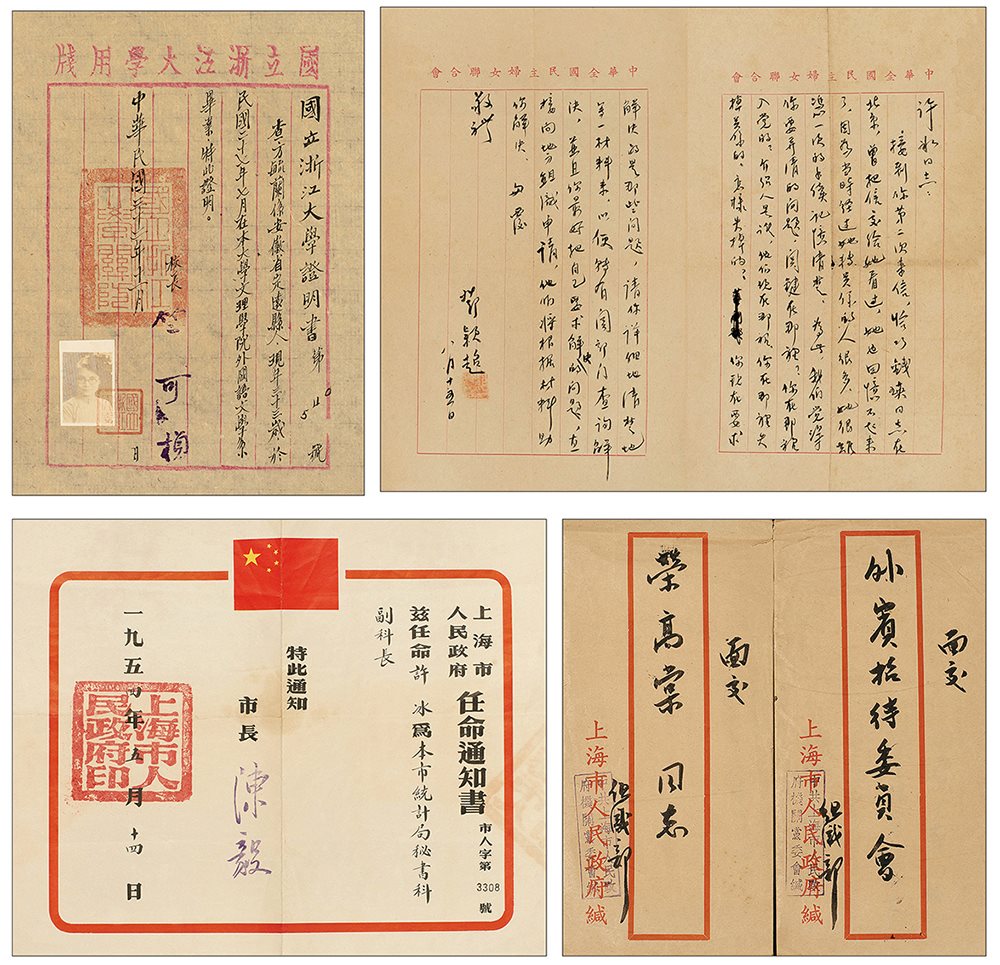 國立浙江大學用牋
國立浙江大學證明書 第 號
查方毓蘭係安徽省定遠縣人現年二十三歲於
民國二十七年七月在本大學文理學院外國語文學系
畢業特此證明。
校長 竺可楨
中華民國 年 月 日
中華全國民主婦女聯合會
許冰同志:
接到你第二次來信,恰巧錢瑛同志在
北京,曾把信交給她看過,她也回憶不起來
了。因為當時經過她轉關係的人很多,她很難
憑一次的手續記憶清楚。為此,我們覺得
你要弄清的問題,關鍵在那裡?你在那裡
入黨的?介紹人是誰,他們現在那裡?你在那裡失
掉關係的?怎樣失掉的?你現在要求
中華全國民主婦女聯合會
解決的是那些問題,請你詳細地清楚地
寫一材料來,以便轉有關部門查詢解
決。並且你最好把自己要求解決的問題,直
接向地方組織申請,他們將根據材料助
你解決。 專覆
敬禮
鄧穎超
八月十五日
上海市
人民政府 任命通知書 市人字第 3308 號
茲任命許 冰為本市統計局秘書科
副科長
特此通知
市長 陳毅
一九五四年五月十四日
上海市人
民政府印
面交
外賓招待委員會
上海市人民政府緘
組織部
面交
榮高棠 同志
上海市人民政府緘
組織部